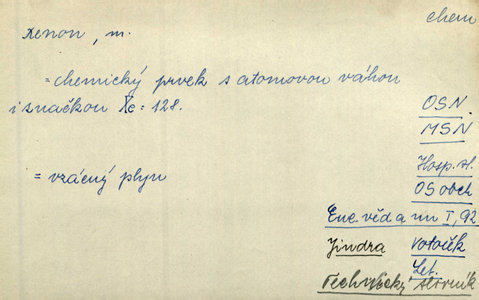 chem
xenon, m.
= chemický prvek s atomovou váhou
i značkou Xe = 128.
OSN
MSN
= vzácný plyn
Hosp. sl.
OS obch
Enc. věd a um I, 92
Jindra Votoček
Let.
Technický slovník